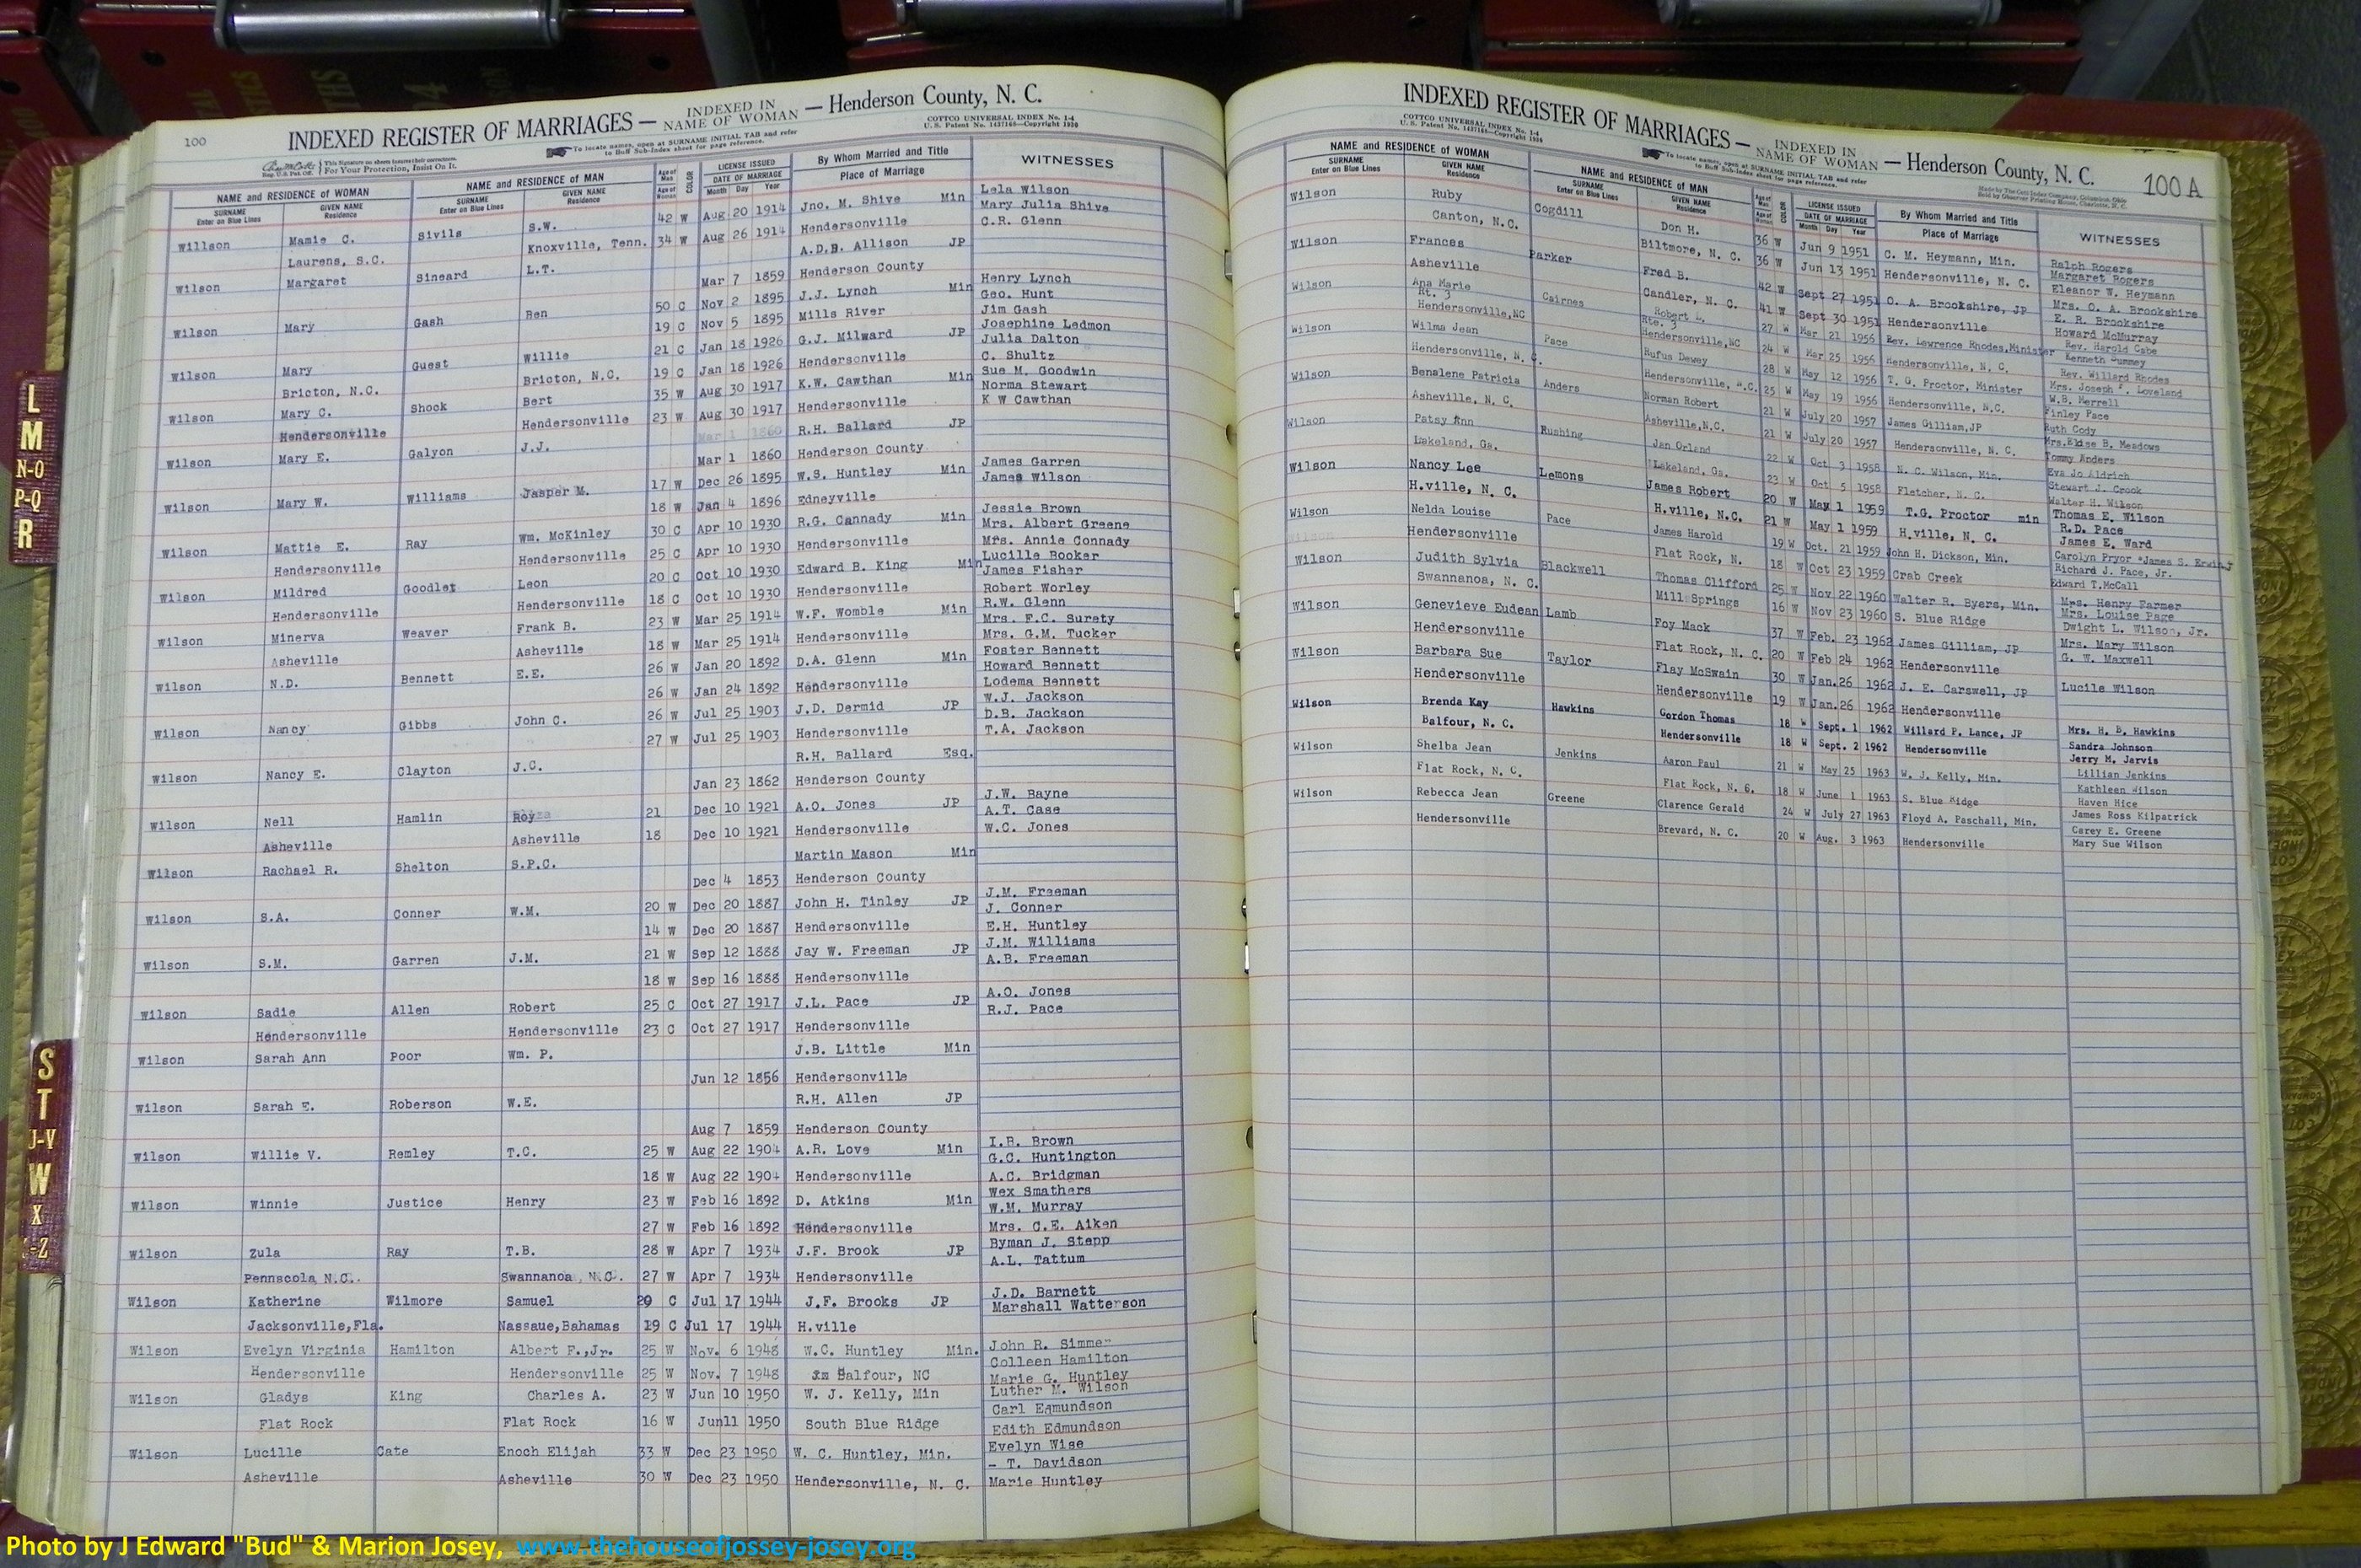 100
INDEXED REGISTER OF MARRIAGES — INDEXED IN NAME OF WOMAN — Henderson County, N. C.
To locate names, open at SURNAME INITIAL TAB and refer to Buff Sub-Index sheet for page reference.
COTTCO UNIVERSAL INDEX No. 1-4
U. S. Patent No. 1437160—Copyright 1936
This Signature on sheets insures their correctness.
For Your Protection, Insist On It.
NAME and RESIDENCE OF WOMAN NAME and RESIDENCE OF MAN Age of Man Age of Woman COLOR LICENSE ISSUED DATE OF MARRIAGE By Whom Married and Title Place of Marriage WITNESSES
SURNAME Enter on Blue Lines GIVEN NAME Residence SURNAME Enter on Blue Lines GIVEN NAME Residence Month Day Year
Willson Mamie C. Sivils S.W. 42 W Aug 20 1914 Jno. M. Shive Min Lela Wilson
Mary Julia Shive
Laurens, S.C. Knoxville, Tenn. 34 W Aug 26 1914 Hendersonville C.R. Glenn
Wilson Margaret Sineard L.T. A.D.B. Allison JP
Mar 7 1859 Henderson County
Wilson Mary Gash Ben 50 C Nov 2 1895 J.J. Lynch Min Henry Lynch
Geo. Hunt
19 C Nov 5 1895 Mills River Jim Gash
Wilson Mary Guest Willie 21 C Jan 18 1926 G.J. Milward JP Josephine Ledmon
Julia Dalton
Bricton, N.C. Bricton, N.C. 19 C Jan 18 1926 Hendersonville C. Shultz
Wilson Mary C. Shock Bert 35 W Aug 30 1917 K.W. Cawthan Min Sue M. Goodwin
Norma Stewart
Hendersonville Hendersonville 23 W Aug 30 1917 Hendersonville K W Cawthan
Wilson Mary E. Galyon J.J. Mar 1 1860 R.H. Ballard JP
Mar 1 1860 Henderson County
Wilson Mary W. Williams Jasper M. 17 W Dec 26 1895 W.S. Huntley Min James Garren
James Wilson
18 W Jan 4 1896 Edneyville
Wilson Mattie E. Ray Wm. McKinley 30 C Apr 10 1930 R.G. Cannady Min Jessie Brown
Mrs. Albert Greene
Hendersonville Hendersonville 25 C Apr 10 1930 Hendersonville Mrs. Annie Connady
Wilson Mildred Goodlet Leon 20 C Oct 10 1930 Edward B. King Min Lucille Booker
James Fisher
Hendersonville Hendersonville 18 C Oct 10 1930 Hendersonville Robert Worley
Wilson Minerva Weaver Frank B. 23 W Mar 25 1914 W.F. Womble Min R.W. Glenn
Mrs. F.C. Surety
Asheville Asheville 18 W Mar 25 1914 Hendersonville Mrs. G.M. Tucker
Wilson N.D. Bennett E.E. 26 W Jan 20 1892 D.A. Glenn Min Foster Bennett
Howard Bennett
26 W Jan 24 1892 Hendersonville Lodema Bennett
Wilson Nancy Gibbs John C. 26 W Jul 25 1903 J.D. Dermid JP W.J. Jackson
D.B. Jackson
27 W Jul 25 1903 Hendersonville T.A. Jackson
Wilson Nancy E. Clayton J.C. R.H. Ballard Esq.
Jan 23 1862 Henderson County
Wilson Nell Hamlin Roy 21 Dec 10 1921 A.O. Jones JP J.W. Bayne
A.T. Case
Asheville Asheville 18 Dec 10 1921 Hendersonville W.C. Jones
Wilson Rachael R. Shelton S.P.C. Martin Mason Min
Dec 4 1853 Henderson County
Wilson S.A. Conner W.M. 20 W Dec 20 1887 John H. Tinley JP J.M. Freeman
J. Conner
14 W Dec 20 1887 Hendersonville E.H. Huntley
Wilson S.M. Garren J.M. 21 W Sep 12 1888 Jay W. Freeman JP J.M. Williams
A.B. Freeman
18 W Sep 16 1888 Hendersonville
Wilson Sadie Allen Robert 25 C Oct 27 1917 J.L. Pace JP A.O. Jones
R.J. Pace
Hendersonville Hendersonville 23 C Oct 27 1917 Hendersonville
Wilson Sarah Ann Poor Wm. P. J.B. Little Min
Jun 12 1856 Hendersonville
Wilson Sarah E. Roberson W.E. R.H. Allen JP
Aug 7 1859 Henderson County
Wilson Willie V. Remley T.C. 25 W Aug 22 1904 A.R. Love Min I.B. Brown
G.C. Huntington
18 W Aug 22 1904 Hendersonville A.C. Bridgman
Wilson Winnie Justice Henry 23 W Feb 16 1892 D. Atkins Min Wex Smathers
W.M. Murray
27 W Feb 16 1892 Hendersonville Mrs. C.E. Aiken
Wilson Zula Ray T.B. 28 W Apr 7 1934 J.F. Brook JP Byman J. Stepp
A.L. Tattum
Pennscola, N.C. Swannanoa, N.C. 27 W Apr 7 1934 Hendersonville
Wilson Katherine Wilmore Samuel 20 C Jul 17 1944 J.F. Brooks JP J.D. Barnett
Marshall Watterson
Jacksonville,Fla. Nassaue,Bahamas 19 C Jul 17 1944 H.ville
Wilson Evelyn Virginia Hamilton Albert F.,Jr. 25 W Nov. 6 1948 W.C. Huntley Min. John R. Simmer
Colleen Hamilton
Hendersonville Hendersonville 25 W Nov. 7 1948 Balfour, NC Marie G. Huntley
Wilson Gladys King Charles A. 23 W Jun 10 1950 W. J. Kelly, Min Luther M. Wilson
Carl Edmundson
Flat Rock Flat Rock 16 W Jun11 1950 South Blue Ridge Edith Edmundson
Wilson Lucille Cate Enoch Elijah 33 W Dec 23 1950 W. C. Huntley, Min. Evelyn Wise
- T. Davidson
Asheville Asheville 30 W Dec 23 1950 Hendersonville, N. C. Marie Huntley
INDEXED REGISTER OF MARRIAGES — INDEXED IN NAME OF WOMAN — Henderson County, N. C.
100 A
COTTCO UNIVERSAL INDEX No. 1-4
U. S. Patent No. 1437160—Copyright 1936
To locate names, open at SURNAME INITIAL TAB and refer to Buff Sub-Index sheet for page reference.
NAME and RESIDENCE OF WOMAN NAME and RESIDENCE OF MAN Age of Man Age of Woman COLOR LICENSE ISSUED DATE OF MARRIAGE By Whom Married and Title Place of Marriage WITNESSES
SURNAME Enter on Blue Lines GIVEN NAME Residence SURNAME Enter on Blue Lines GIVEN NAME Residence Month Day Year
Wilson Ruby Cogdill Don H. 36 W Jun 9 1951 C. M. Heymann, Min. Ralph Rogers
Margaret Rogers
Canton, N.C. Biltmore, N. C. 36 W Jun 13 1951 Hendersonville, N. C. Eleanor W. Heymann
Wilson Frances Parker Fred B. 42 W Sept 27 1951 O. A. Brookshire, JP Mrs. O. A. Brookshire
E. R. Brookshire
Asheville Candler, N. C. 41 W Sept 30 1951 Hendersonville Howard McMurray
Wilson Ana Marie Cairnes Robert L. 27 W Mar 21 1956 Rev. Lawrence Rhodes,Minister Rev. Harold Cabe
Kenneth Summey
Rt. 3 Hendersonville,NC Rte. 3 Hendersonville,NC 24 W Mar 25 1956 Hendersonville, N. C. Rev. Willard Rhodes
Wilson Wilma Jean Pace Rufus Dewey 28 W May 12 1956 T. G. Proctor, Minister Mrs. Joseph F. Loveland
W.B. Merrell
Hendersonville, N. C. Hendersonville, N.C. 25 W May 19 1956 Hendersonville, N.C. Finley Pace
Wilson Benalene Patricia Anders Norman Robert 21 W July 20 1957 James Gilliam,JP Ruth Cody
Mrs.Elise B. Meadows
Asheville, N. C. Asheville,N.C. 21 W July 20 1957 Hendersonville, N. C. Tommy Anders
Wilson Patsy Ann Rushing Jan Orland 22 W Oct 3 1958 N. C. Wilson, Min. Eva Jo Aldrich
Stewart J. Crook
Lakeland, Ga. Lakeland, Ga. 23 W Oct 5 1958 Fletcher, N. C. Walter H. Wilson
Wilson Nancy Lee Lemons James Robert 20 W May 1 1959 T.G. Proctor min Thomas E. Wilson
R.D. Pace
H.ville, N. C. H.ville, N.C. 21 W May 1 1959 H.ville, N. C. James E. Ward
Wilson Nelda Louise Pace James Harold 19 W Oct. 21 1959 John H. Dickson, Min. Carolyn Pryor James S. Erwin
Richard J. Pace, Jr.
Hendersonville Flat Rock, N. 18 W Oct 23 1959 Crab Creek Edward T.McCall
Wilson Judith Sylvia Blackwell Thomas Clifford 25 W Nov 22 1960 Walter R. Byers, Min. Mrs. Henry Farmer
Mrs. Louise Page
Swannanoa, N. C. Mill Springs 16 W Nov 23 1960 S. Blue Ridge Dwight L. Wilson, Jr.
Wilson Genevieve Eudean Lamb Foy Mack 37 W Feb. 23 1962 James Gilliam, JP Mrs. Mary Wilson
G. W. Maxwell
Hendersonville Flat Rock, N. C. 20 W Feb 24 1962 Hendersonville
Wilson Barbara Sue Taylor Flay McSwain 30 W Jan.26 1962 J. E. Carswell, JP Lucile Wilson
Hendersonville Hendersonville 19 W Jan.26 1962 Hendersonville
Wilson Brenda Kay Hawkins Gordon Thomas 18 W Sept. 1 1962 Willard P. Lance, JP Mrs. H. B. Hawkins
Sandra Johnson
Balfour, N. C. Hendersonville 18 W Sept. 2 1962 Hendersonville Jerry M. Jarvis
Wilson Shelba Jean Jenkins Aaron Paul 21 W May 25 1963 W. J. Kelly, Min. Lillian Jenkins
Kathleen Wilson
Flat Rock, N. C. Flat Rock, N. C. 18 W June 1 1963 S. Blue Ridge Haven Hice
Wilson Rebecca Jean Greene Clarence Gerald 24 W July 27 1963 Floyd A. Paschall, Min. James Ross Kilpatrick
Carey E. Greene
Hendersonville Brevard, N. C. 20 W Aug. 3 1963 Hendersonville Mary Sue Wilson
L
M
N-O
P-Q
R
S
T
U-V
W
X
Photo by J Edward "Bud" & Marion Josey, www.thehouseofjossey-josey.org